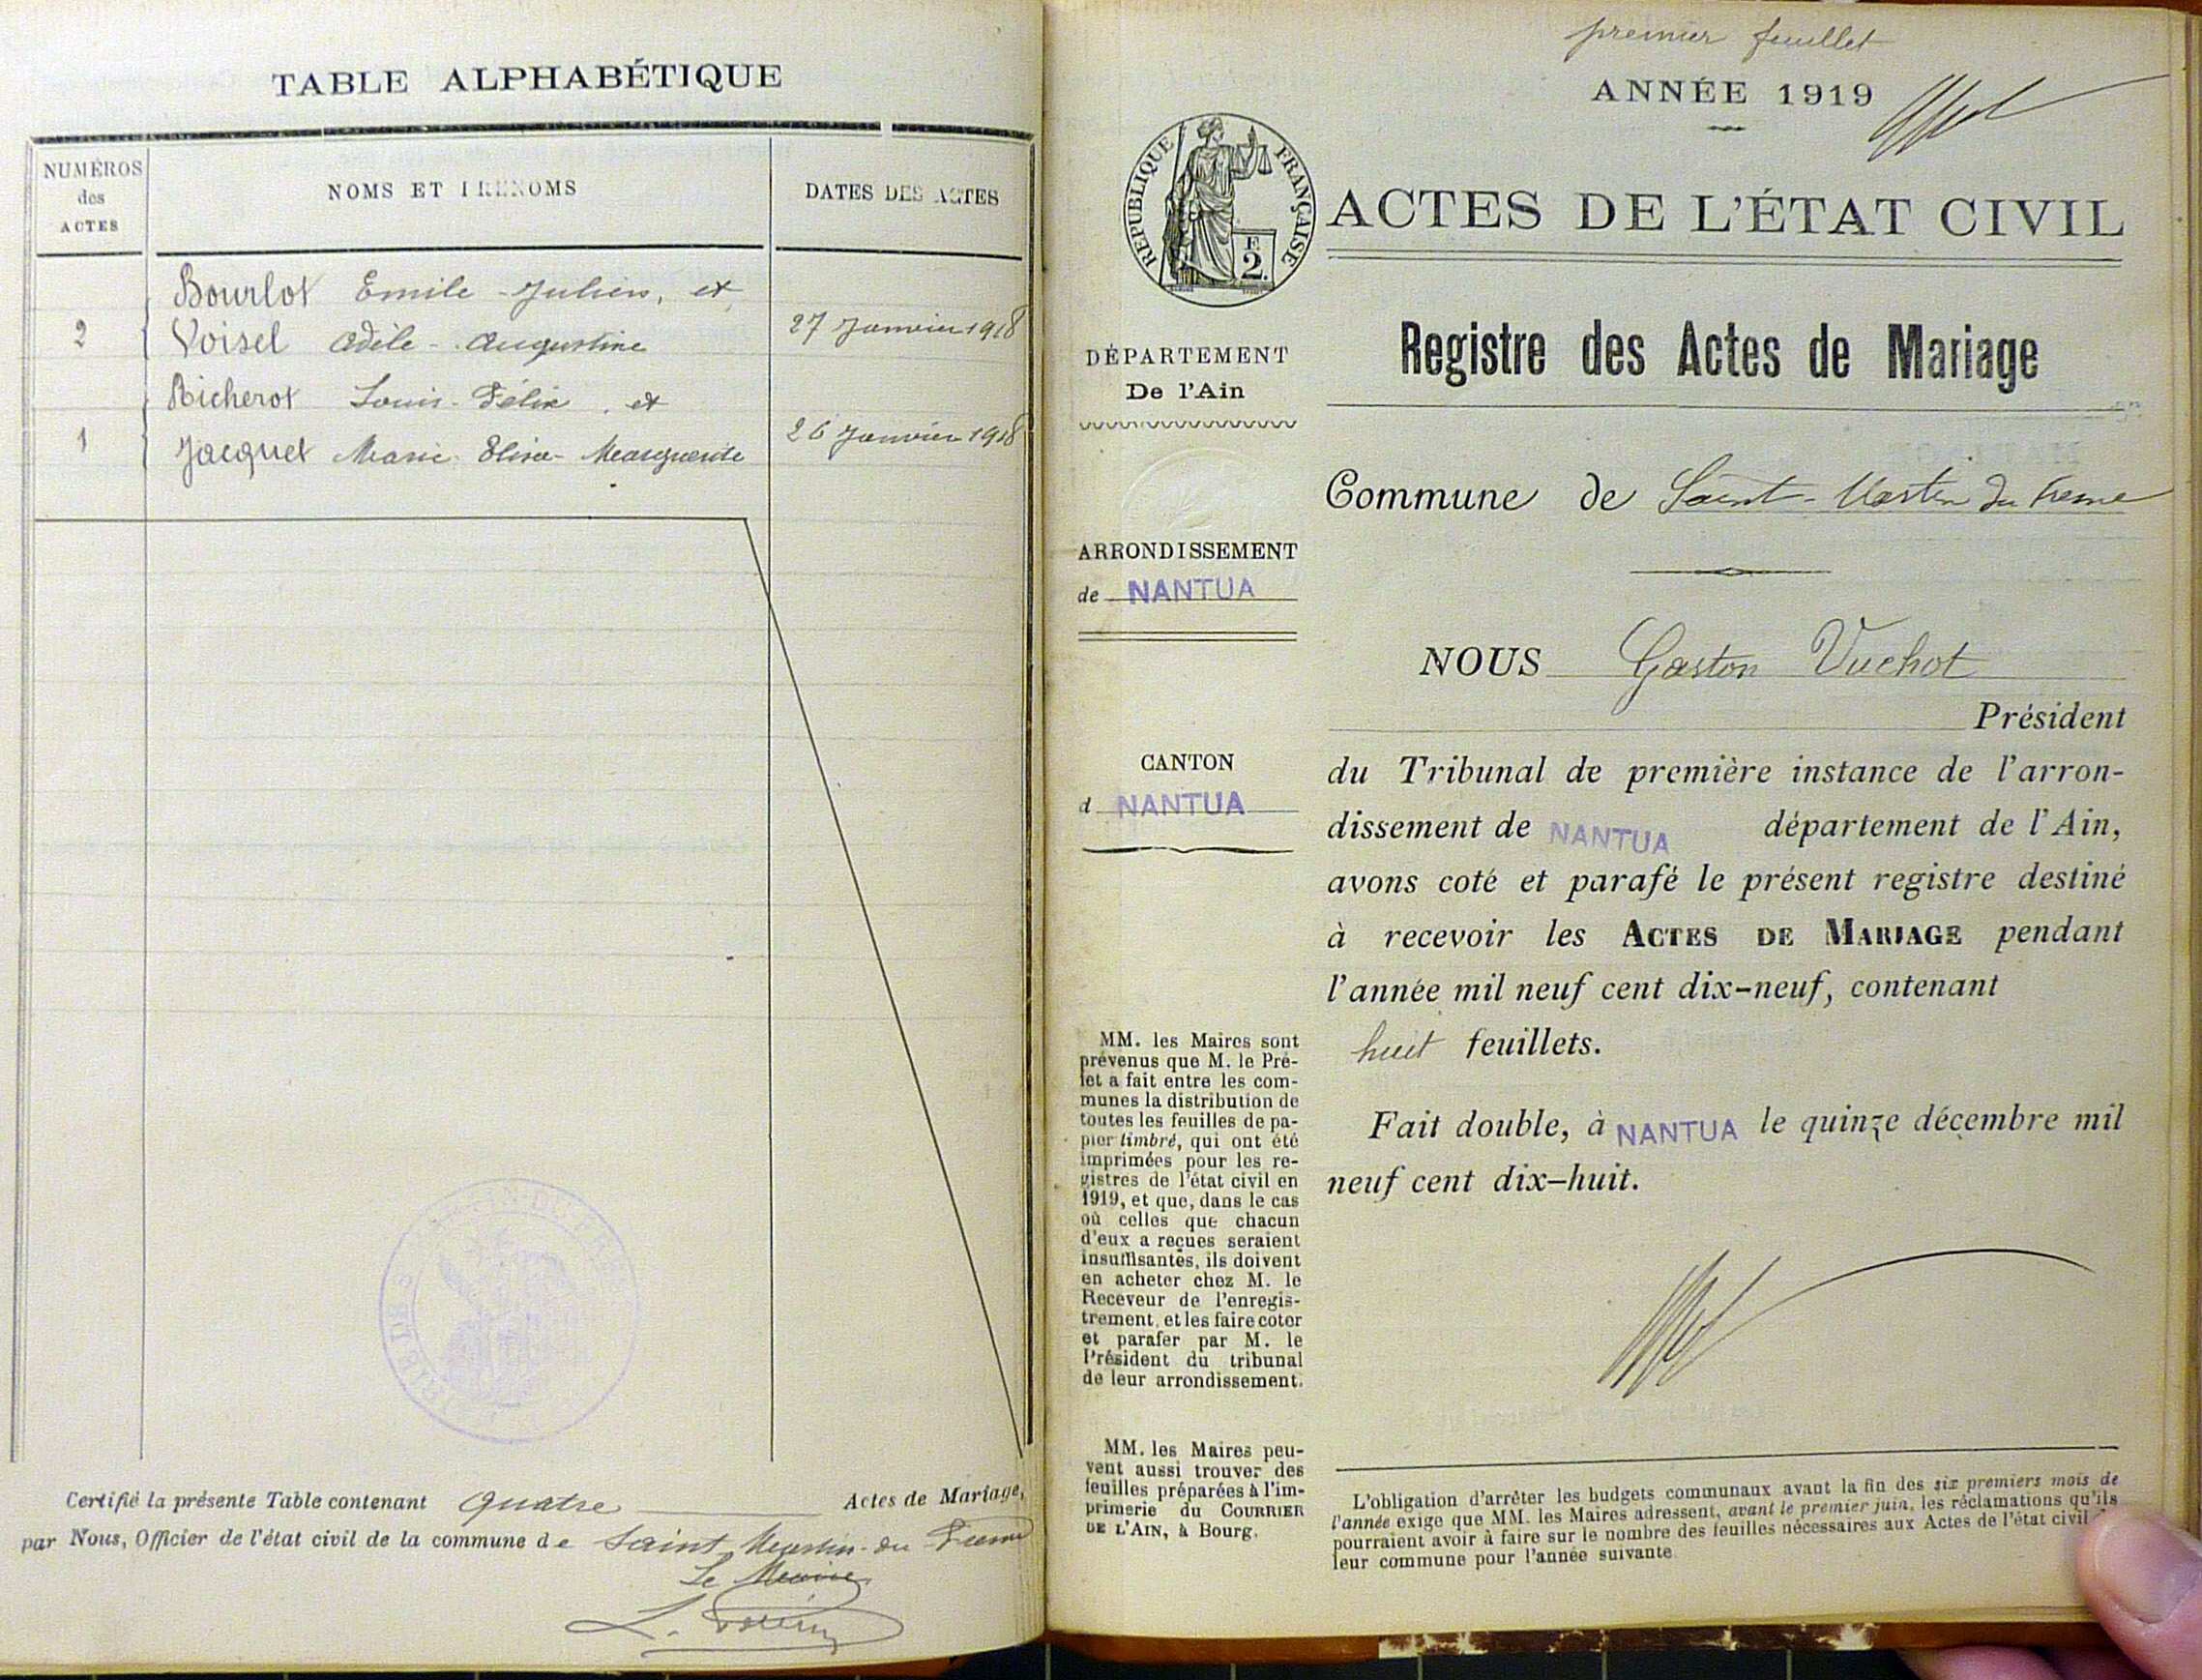 TABLE ALPHABÉTIQUE
NUMÉROS
des
ACTES
NOMS ET PRÉNOMS
DATES DES ACTES
Bourlot Emile-Julien, et
2 Voisel Adèle-Augustine 27 Janvier 1918
Richerot Louis-Félix, et
1 Jacquet Marie Elisa-Marguerite 26 Janvier 1918
Certifié la présente Table contenant quatre Actes de Mariage,
par Nous, Officier de l'état civil de la commune de Saint Martin-du-Fresne
Le Maire
premier feuillet
ANNÉE 1919
RÉPUBLIQUE FRANÇAISE
F.
2.
ACTES DE L'ÉTAT CIVIL
Registre des Actes de Mariage
DÉPARTEMENT
De l'Ain
Commune de Saint-Martin du Fresne
ARRONDISSEMENT
de NANTUA
CANTON
d NANTUA
NOUS Gaston Vuchot
Président
du Tribunal de première instance de l'arron-
dissement de NANTUA département de l'Ain,
avons coté et parafé le présent registre destiné
à recevoir les ACTES DE MARIAGE pendant
l'année mil neuf cent dix-neuf, contenant
huit feuillets.
Fait double, à NANTUA le quinze décembre mil
neuf cent dix-huit.
MM. les Maires sont
prévenus que M. le Pré-
fet a fait entre les com-
munes la distribution de
toutes les feuilles de pa-
pier timbré, qui ont été
imprimées pour les re-
gistres de l'état civil en
1919, et que, dans le cas
où celles que chacun
d'eux a reçues seraient
insuffisantes, ils doivent
en acheter chez M. le
Receveur de l'enregis-
trement, et les faire coter
et parafer par M. le
Président du tribunal
de leur arrondissement.
MM. les Maires peu-
vent aussi trouver des
feuilles préparées à l'im-
primerie du COURRIER
DE L'AIN, à Bourg.
L'obligation d'arrêter les budgets communaux avant la fin des six premiers mois de
l'année exige que MM. les Maires adressent, avant le premier juin, les réclamations qu'ils
pourraient avoir à faire sur le nombre des feuilles nécessaires aux Actes de l'état civil
leur commune pour l'année suivante.